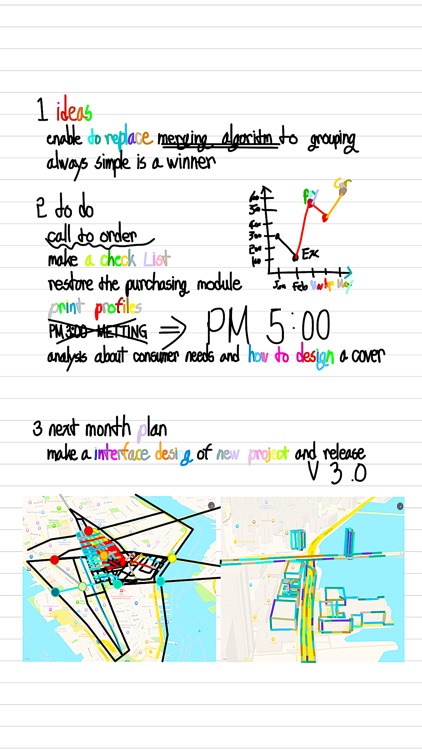 1 ideas
enable do replace merging algorithm to grouping
always simple is a winner
2 to do
call to order
make a check List
restore the purchasing module
print profiles
PM 3:00 METTING ⇒ PM 5:00
analysis about consumer needs and how to design a cover
600
500
400
300
200
100
Ex
Jan Feb Mar Apr May
3 next month plan
make a interface design of new project and release
V 3.0